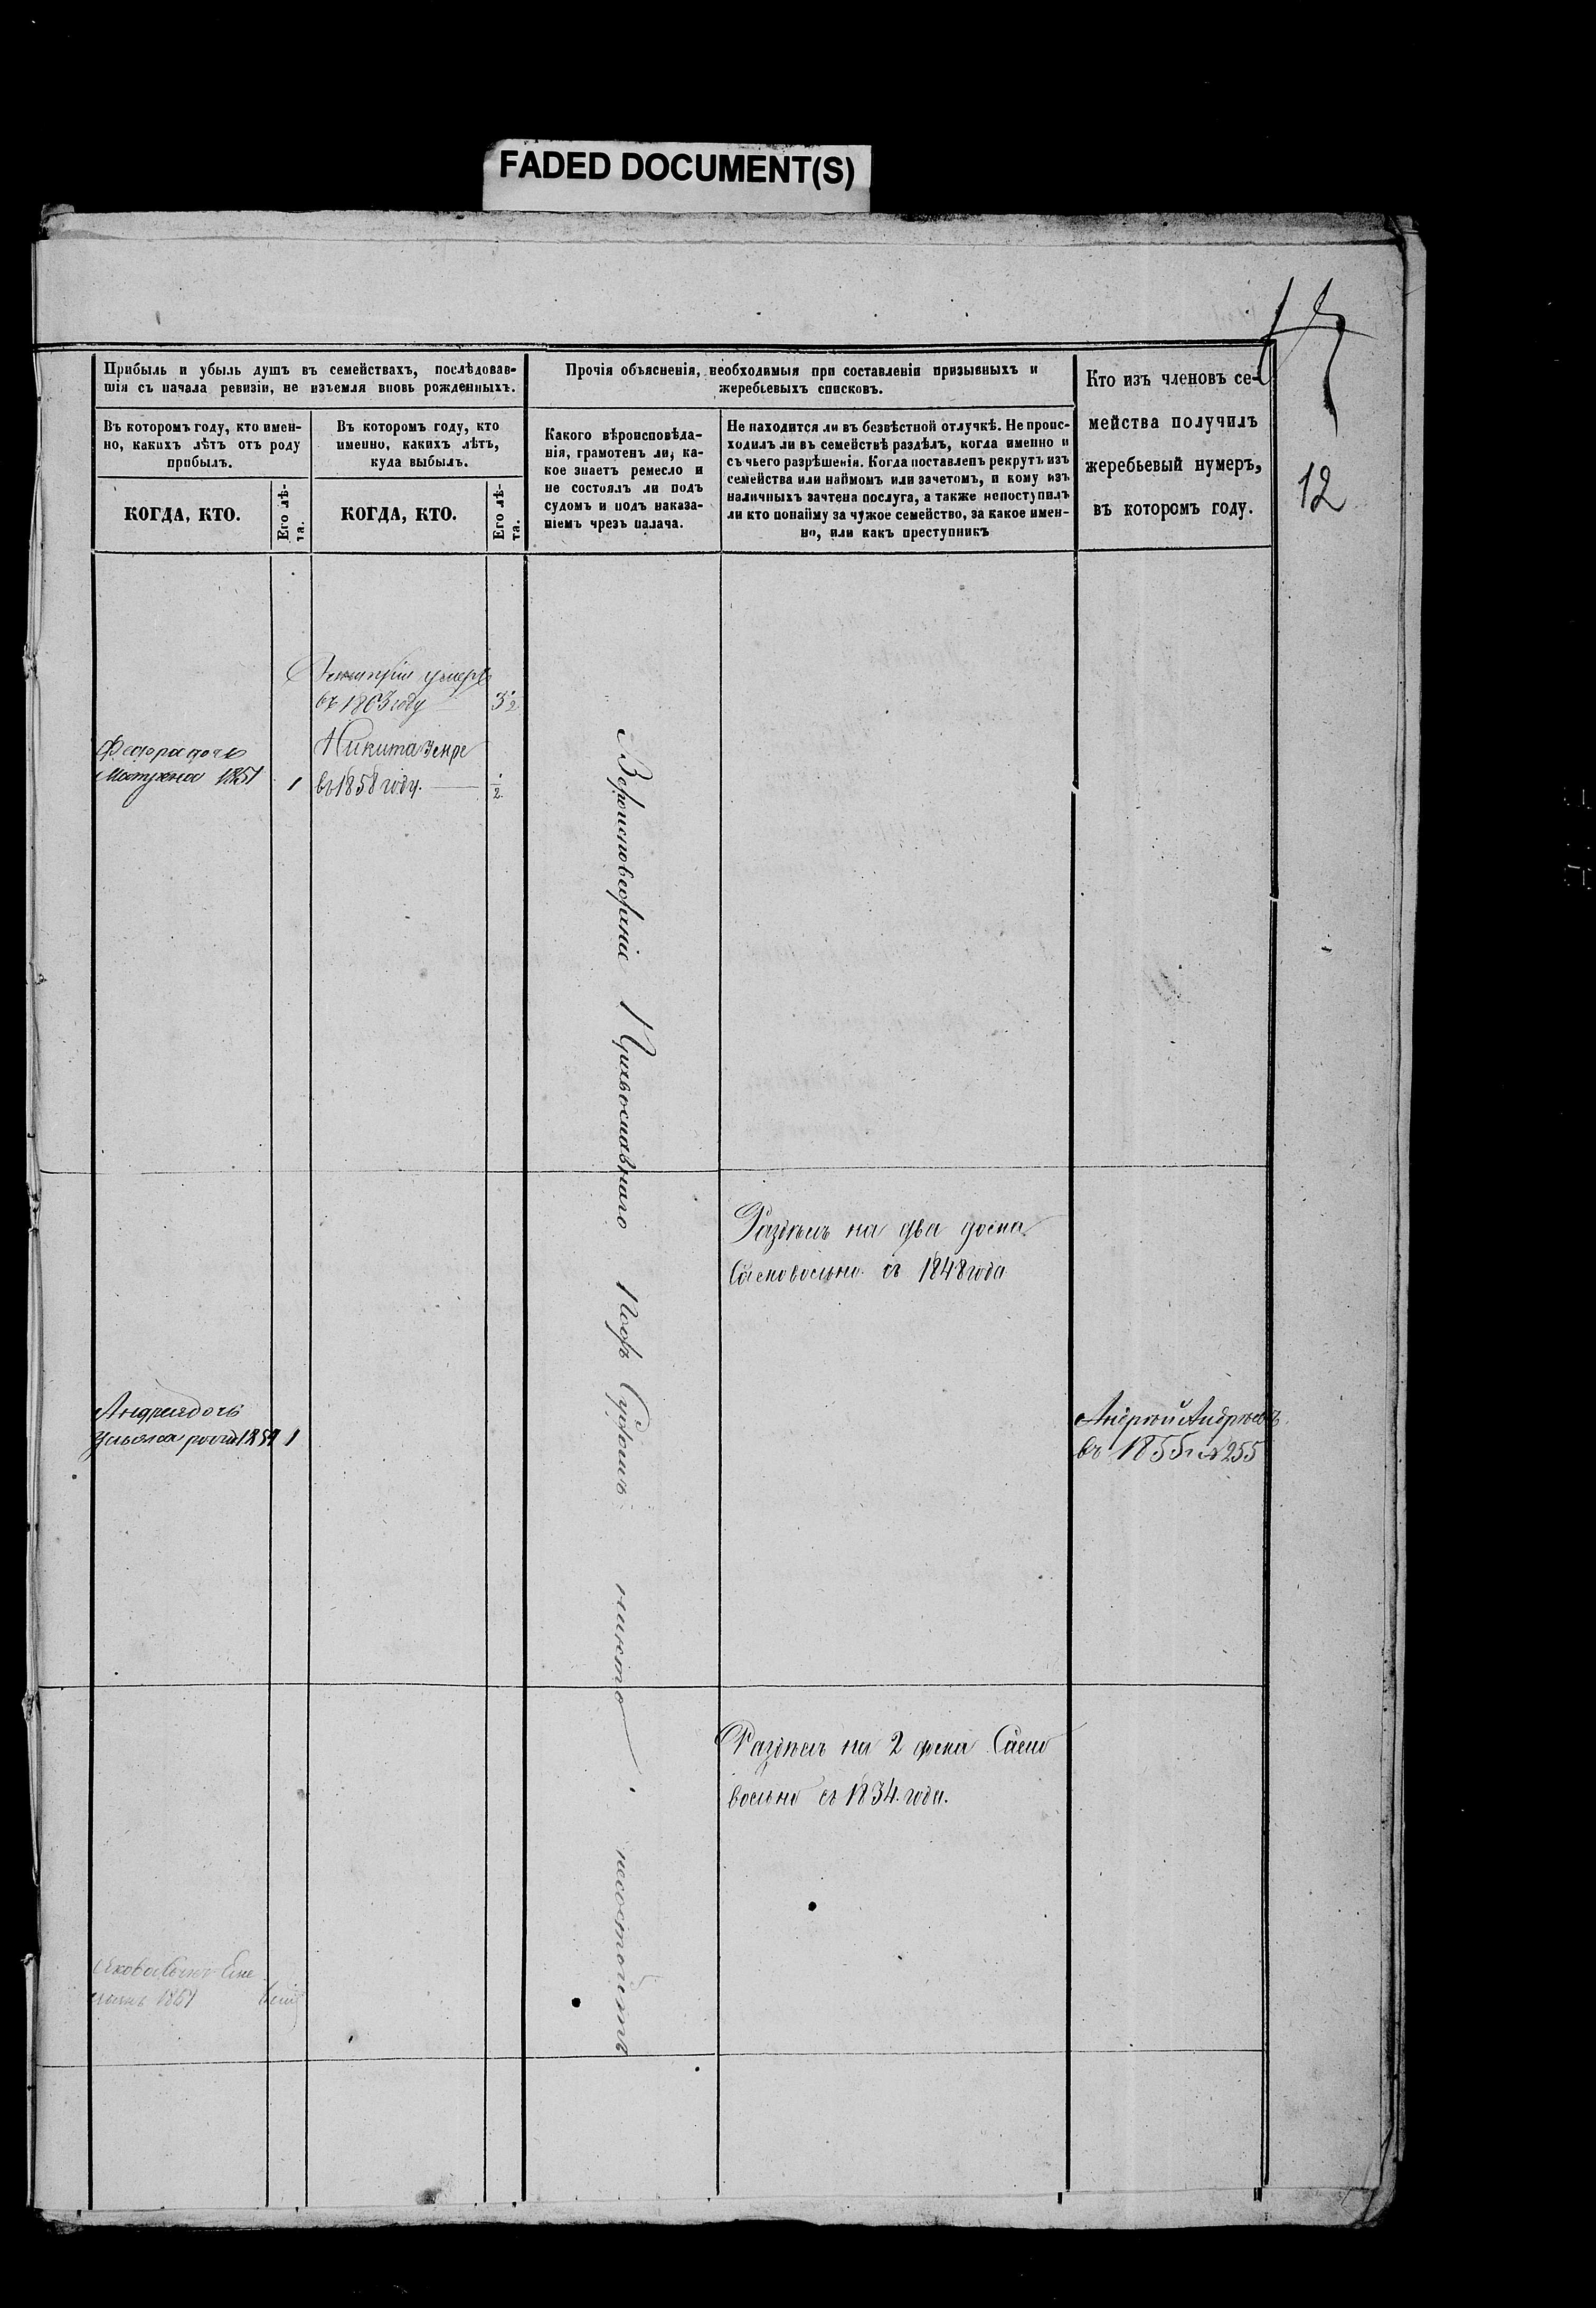 FADED DOCUMENT(S)
12
Прибыль и убыль душъ въ семействахъ, послѣдовав-
шія съ начала ревизіи, не изъемля вновь рожденныхъ.
Въ которомъ году, кто имен-
но, какихъ лѣтъ отъ роду
прибылъ.
КОГДА, КТО.
Его лѣ-
та.
Въ которомъ году, кто
именно, какихъ лѣтъ,
куда выбылъ.
КОГДА, КТО.
Его лѣ-
та.
Прочія объясненія, необходимыя при составленіи призывныхъ и
жеребьевыхъ списковъ.
Какого вѣроисповѣда-
нія, грамотенъ ли, ка-
кое знаетъ ремесло и
не состоялъ ли подъ
судомъ и подъ наказа-
ніемъ чрезъ палача.
Не находится ли въ безвѣстной отлучкѣ. Не проис-
ходилъ ли въ семействѣ раздѣлъ, когда именно и
съ чьего разрѣшенія. Когда поставленъ рекрутъ изъ
семейства или наймомъ или зачетомъ, и кому изъ
наличныхъ зачтена послуга, а также непоступилъ
ли кто понайму за чужое семейство, за какое имен-
но, или какъ преступникъ
Кто изъ членовъ се-
мейства получилъ
жеребьевый нумеръ,
въ которомъ году.
умеръ
въ 1863 году
Федора дочь
1
Никита
въ 1858 году.
1/2
Вероисповеданіе Православнаго Подъ Судомъ никто несостоитъ
Раздѣлъ на два дома
Самовольно съ 1848 года
Андрея дочь
1
Андрей Андреевъ
въ 1855 г № 255
Раздѣлъ на 2 дома Само
вольно съ 1834. года.
Якова сынъ